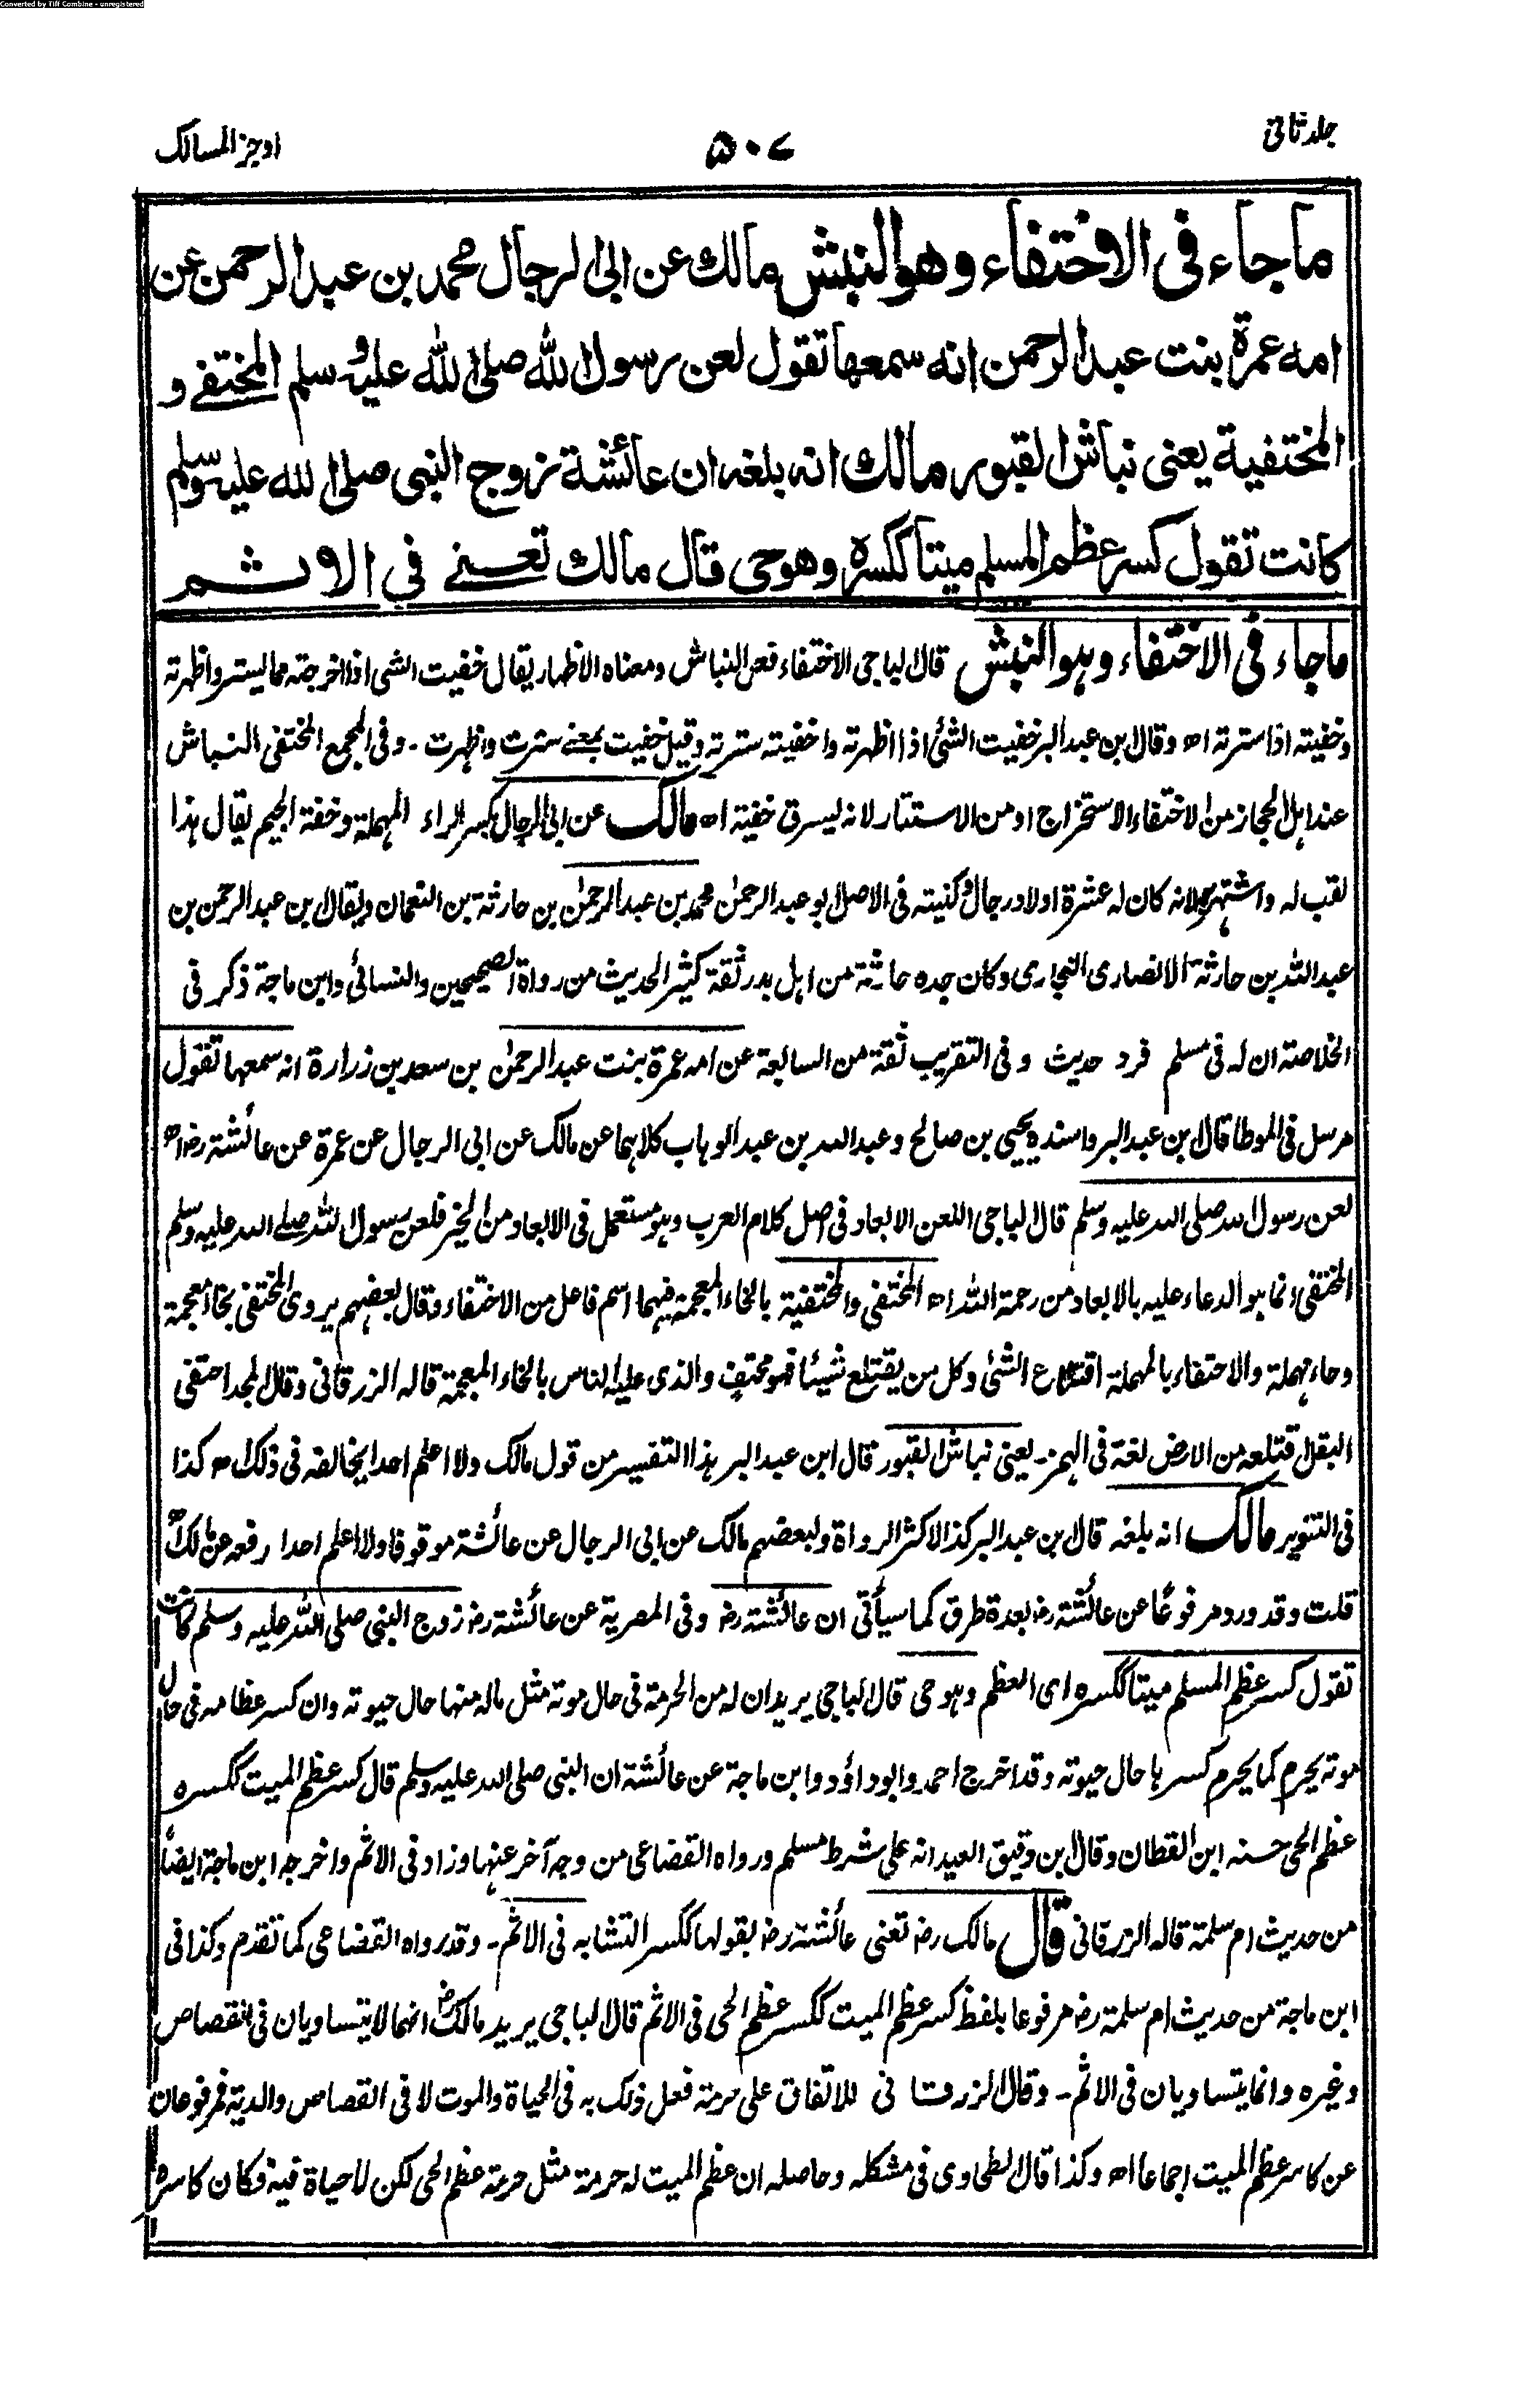 Converted by Tiff Combine - unregistered
جلد ثانی
۵۰۷
اوجز المسالک
ما جاء فی الاختفاء وهو النبش مالك عن ابی الرجال محمد بن عبد الرحمن عن
امه عمرة بنت عبد الرحمن انه سمعها تقول لعن رسول الله صلی الله علیه وسلم المختفی و
المختفیة یعنی نباش القبور مالك انه بلغه ان عائشة زوج النبی صلی الله علیه وسلم
كانت تقول كسر عظم المسلم میتا ككسره وهو حی قال مالك تعنی فی الاثم
ما جاء فی الاختفاء وہو النبش قال الباجی الاختفاء فعل النباش ومعناه الاظهار یقال خفیت الشی اذا اخرجته مما یستر واظهرته
وخفیته اذا سترته اھ وقال ابن عبد البر خفیت الشئ اذا اظهرته واخفیته سترته وقیل خفیت بمعنے سترت واظہرت - وفی المجمع المختفی النباش
عند اہل الحجاز من الاختفاء الاستخراج او من الاستتار لانه یسرق خفیة اھ مالک عن ابی الرجال بکسر الراء المهملة وخفة الجیم یقال ہذا
لقب له واشتهر به لانه کان له عشرة اولاد رجال وکنیته فی الاصل ابو عبد الرحمن محمد بن عبد الرحمن بن حارثة بن النعمان ویقال ابن عبد الرحمن بن
عبد الله بن حارثة الانصاری النجاری وکان جده حارثة من اہل بدر ثقة کثیر الحدیث من رواة الصحیحین والنسائی وابن ماجة ذکر فی
الخلاصة ان له فی مسلم فرد حدیث وفی التقریب ثقة من السابعة عن امه عمرة بنت عبد الرحمن بن سعد بن زرارة انه سمعها تقول
مرسل فی الموطا قال ابن عبد البر واسنده یحیی بن صالح وعبد الله بن عبد الوہاب کلاہما عن مالک عن ابی الرجال عن عمرة عن عائشة رض اھ
لعن رسول الله صلی الله علیه وسلم قال الباجی اللعن الابعاد فی اصل کلام العرب وہو مستعمل فی الابعاد من الخیر فلعن رسول الله صلے الله علیه وسلم
المختفی انما ہو الدعاء علیه بالابعاد من رحمة الله اھ المختفی والمختفیة بالخاء المعجمة فیہما اسم فاعل من الاختفاء وقال بعضہم یروی المختفی بخاء معجمة
وحاء مہملة والاحتفاء بالمہملة اقتلاع الشئ وکل من یقتلع شیئا فہو محتف والذی علیه الناس بالخاء المعجمة قاله الزرقانی وقال المجد احتفی
البقل اقتلعه من الارض لغة فی الہمز - یعنی نباش القبور قال ابن عبد البر ہذا التفسیر من قول مالک ولا اعلم احدا یخالفه فی ذلک اھ کذا
فی التنویر مالک انه بلغه قال ابن عبد البر کذا لاکثر الرواة ولبعضہم مالک عن ابی الرجال عن عائشة موقوفا ولا اعلم احدا رفعه عن مالک اھ
قلت وقد ورد مرفوعًا عن عائشة رض بعدة طرق کما سیأتی ان عائشة رض وفی المصریة عن عائشة رض زوج النبی صلی الله علیه وسلم کانت
تقول کسر عظم المسلم میتا ککسره ای العظم وہو حی قال الباجی یرید ان له من الحرمة فی حال موته مثل ماله منها حال حیوته وان کسر عظامه فی حال
موته یحرم کما یحرم کسرہا حال حیوته وقد اخرج احمد وابو داؤد وابن ماجة عن عائشة ان النبی صلی الله علیه وسلم قال کسر عظم المیت ککسره
عظم الحی حسنه ابن القطان وقال ابن دقیق العید انه علی شرط مسلم ورواه القضاعی من وجه آخر عنہا وزاد فی الاثم واخرجه ابن ماجة ایضًا
من حدیث ام سلمة قاله الزرقانی قال مالک رض تعنی عائشة رض بقولہا ککسر التشابه فی الاثم - وقد رواه القضاعی کما تقدم وکذا فی
ابن ماجة من حدیث ام سلمة رض مرفوعا بلفظ کسر عظم المیت ککسر عظم الحی فی الاثم قال الباجی یرید مالک رض انهما لا یتساویان فی القصاص
وغیره وانما یتساویان فی الاثم - وقال الزرقانی للاتفاق علی حرمة فعل ذلک به فی الحیاة والموت لا فی القصاص والدیة فمرفوعان
عن کاسر عظم المیت اجماعا اھ وکذا قال الطحاوی فی مشکله وحاصله ان عظم المیت له حرمة مثل حرمة عظم الحی لکن لا حیاة فیه فکان کاسره